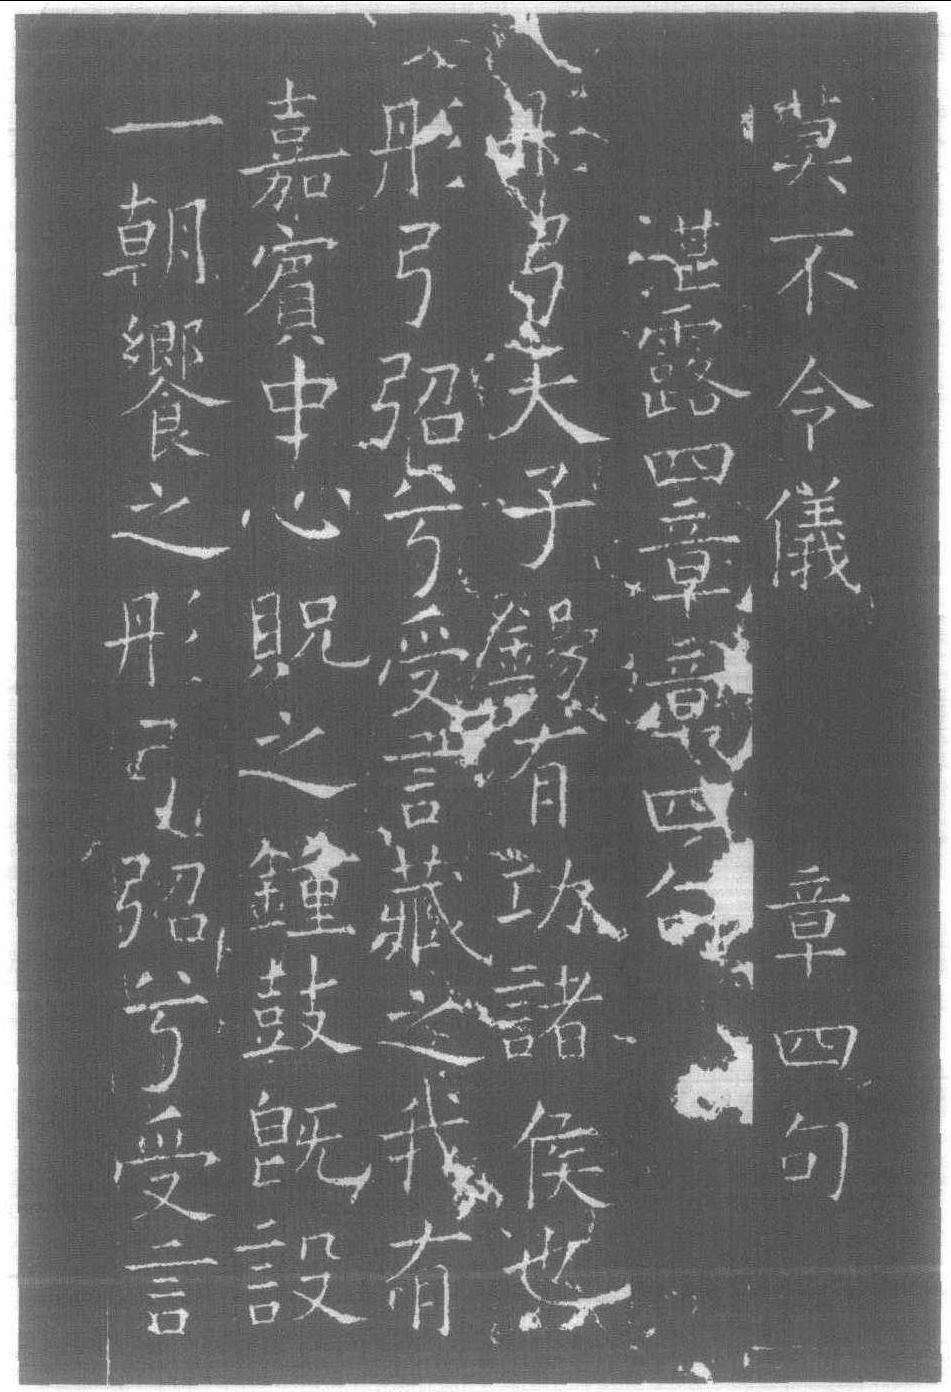 莫不令儀　章四句
湛露四章章四句
彤弓天子錫有功諸侯也
彤弓弨兮受言藏之我有
嘉賓中心貺之鐘鼓既設
一朝饗之彤弓弨兮受言